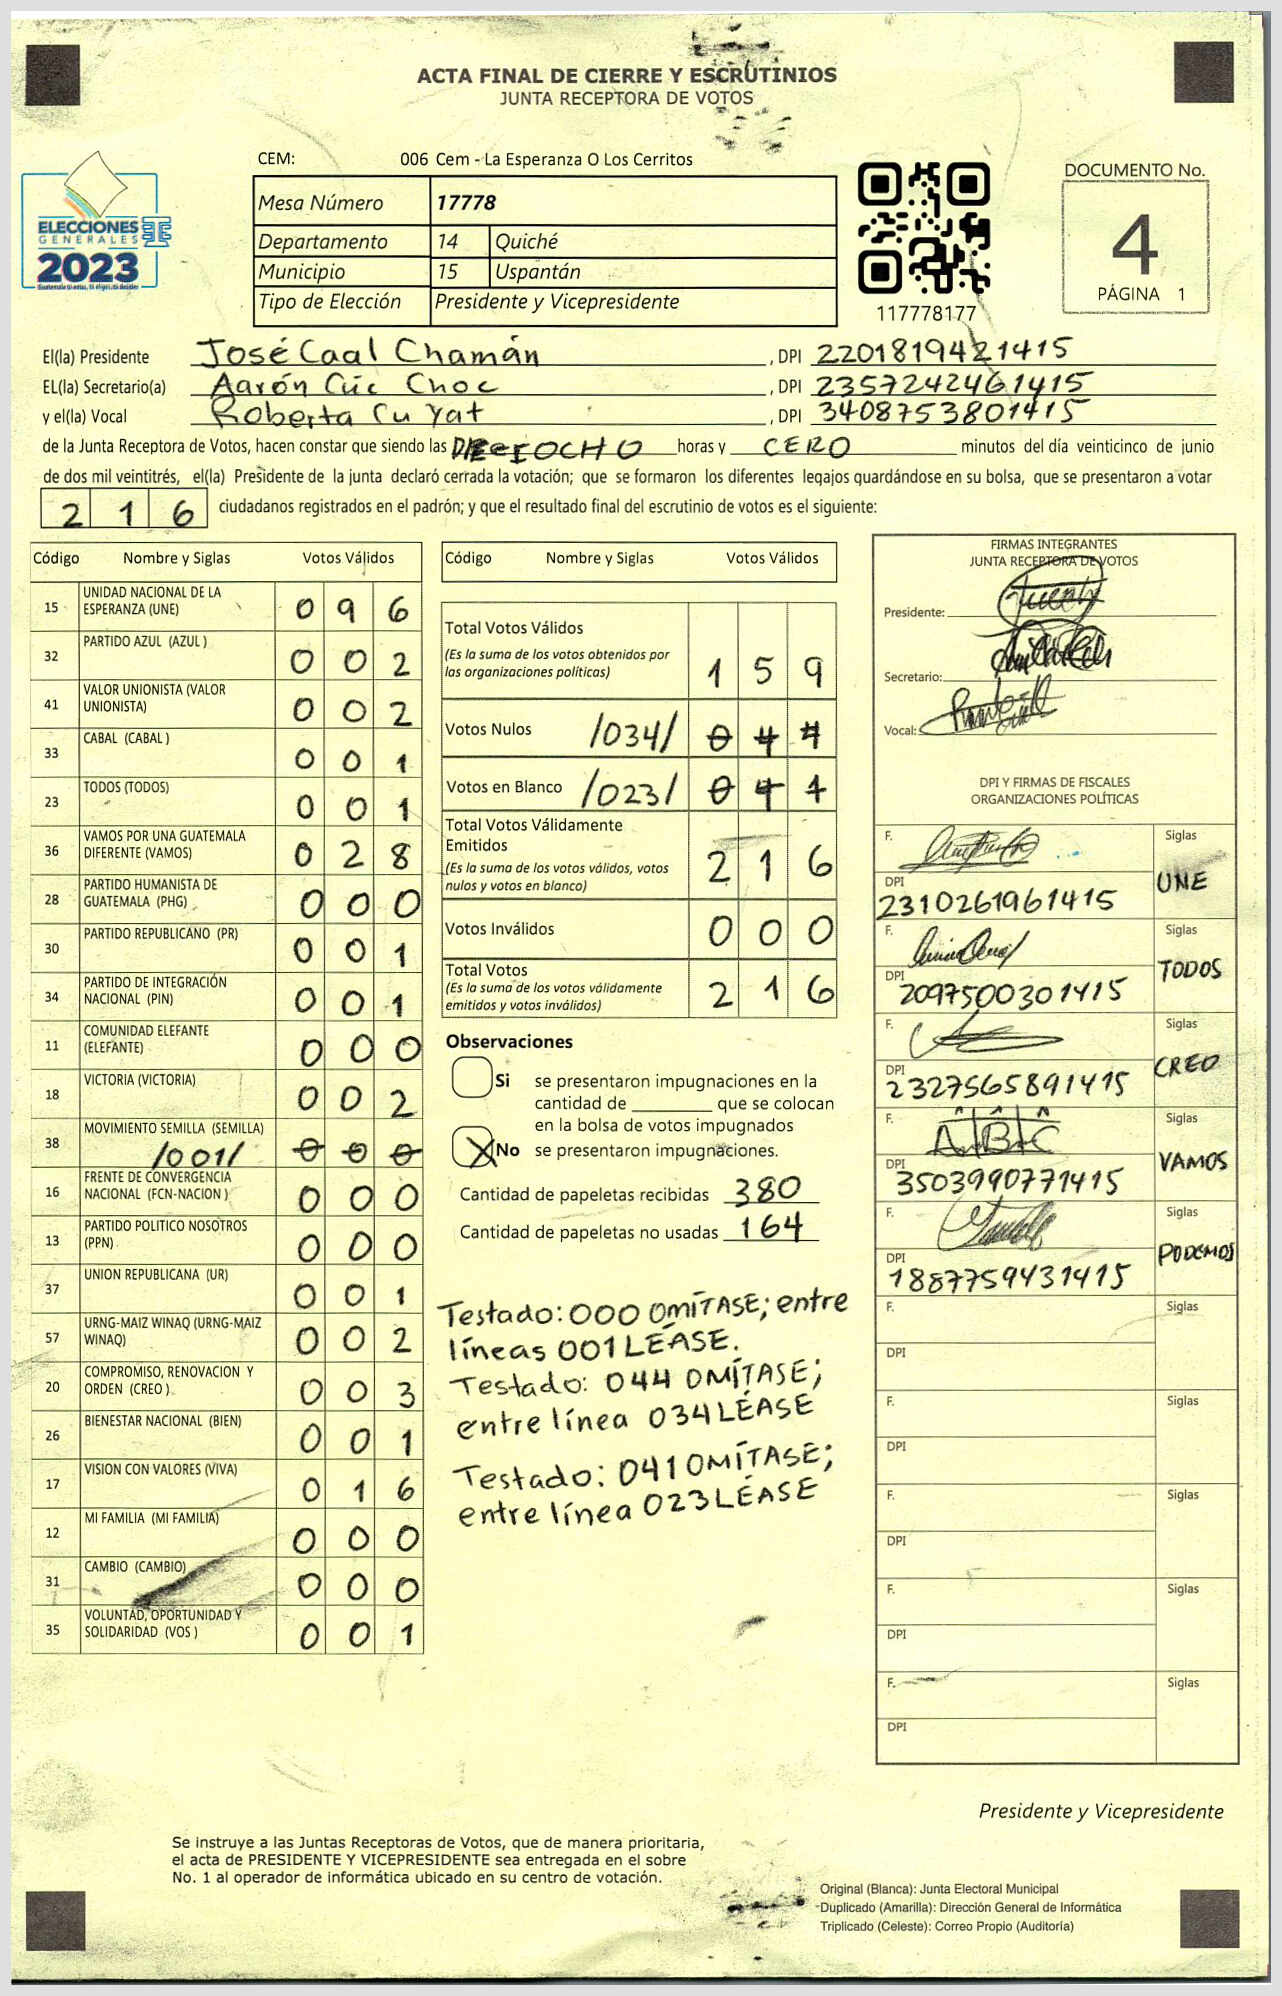 ACTA FINAL DE CIERRE Y ESCRUTINIOS
JUNTA RECEPTORA DE VOTOS
CEM: 006 Cem - La Esperanza O Los Cerritos
ELECCIONES
GENERALES
2023
Mesa Número 17778
Departamento 14 Quiché
Municipio 15 Uspantán
Tipo de Elección Presidente y Vicepresidente
117778177
DOCUMENTO No.
4
PÁGINA 1
El(la) Presidente José Caal Chamán , DPI 2201819421415
EL(la) Secretario(a) Aarón Cúc Choc , DPI 2357242461415
y el(la) Vocal Roberta Cu Yat , DPI 3408753801415
de la Junta Receptora de Votos, hacen constar que siendo las DIECIOCHO horas y CERO minutos del día veinticinco de junio
de dos mil veintitrés, el(la) Presidente de la junta declaró cerrada la votación; que se formaron los diferentes legajos guardándose en su bolsa, que se presentaron a votar
216 ciudadanos registrados en el padrón; y que el resultado final del escrutinio de votos es el siguiente:
Código Nombre y Siglas Votos Válidos
15 UNIDAD NACIONAL DE LA ESPERANZA (UNE) 096
32 PARTIDO AZUL (AZUL ) 002
41 VALOR UNIONISTA (VALOR UNIONISTA) 002
33 CABAL (CABAL ) 001
23 TODOS (TODOS) 001
36 VAMOS POR UNA GUATEMALA DIFERENTE (VAMOS) 028
28 PARTIDO HUMANISTA DE GUATEMALA (PHG) 000
30 PARTIDO REPUBLICANO (PR) 001
34 PARTIDO DE INTEGRACIÓN NACIONAL (PIN) 001
11 COMUNIDAD ELEFANTE (ELEFANTE) 000
18 VICTORIA (VICTORIA) 002
38 MOVIMIENTO SEMILLA (SEMILLA) /001/ 000
16 FRENTE DE CONVERGENCIA NACIONAL (FCN-NACION ) 000
13 PARTIDO POLITICO NOSOTROS (PPN) 000
37 UNION REPUBLICANA (UR) 001
57 URNG-MAIZ WINAQ (URNG-MAIZ WINAQ) 002
20 COMPROMISO, RENOVACION Y ORDEN (CREO ) 003
26 BIENESTAR NACIONAL (BIEN) 001
17 VISION CON VALORES (VIVA) 016
12 MI FAMILIA (MI FAMILIA) 000
31 CAMBIO (CAMBIO) 000
35 VOLUNTAD, OPORTUNIDAD Y SOLIDARIDAD (VOS ) 001
Código Nombre y Siglas Votos Válidos
Total Votos Válidos
(Es la suma de los votos obtenidos por
las organizaciones políticas) 159
Votos Nulos /034/ 044
Votos en Blanco /023/ 041
Total Votos Válidamente
Emitidos
(Es la suma de los votos válidos, votos
nulos y votos en blanco) 216
Votos Inválidos 000
Total Votos
(Es la suma de los votos válidamente
emitidos y votos inválidos) 216
Observaciones
Si se presentaron impugnaciones en la
cantidad de ________ que se colocan
en la bolsa de votos impugnados
X No se presentaron impugnaciones.
Cantidad de papeletas recibidas 380
Cantidad de papeletas no usadas 164
Testado: 000 OMÍTASE; entre
líneas 001 LÉASE.
Testado: 044 OMÍTASE;
entre línea 034 LÉASE
Testado: 041 OMÍTASE;
entre línea 023 LÉASE
FIRMAS INTEGRANTES
JUNTA RECEPTORA DE VOTOS
Presidente:
Secretario:
Vocal:
DPI Y FIRMAS DE FISCALES
ORGANIZACIONES POLÍTICAS
F. Siglas
DPI 2310261961415 UNE
F. Siglas
DPI 2097500301415 TODOS
F. Siglas
DPI 2327565891415 CREO
F. Siglas
DPI 3503990771415 VAMOS
F. Siglas
DPI 1887759431415 PODEMOS
F. Siglas
DPI
F. Siglas
DPI
F. Siglas
DPI
F. Siglas
DPI
F. Siglas
DPI
Presidente y Vicepresidente
Se instruye a las Juntas Receptoras de Votos, que de manera prioritaria,
el acta de PRESIDENTE Y VICEPRESIDENTE sea entregada en el sobre
No. 1 al operador de informática ubicado en su centro de votación.
Original (Blanca): Junta Electoral Municipal
Duplicado (Amarilla): Dirección General de Informática
Triplicado (Celeste): Correo Propio (Auditoría)